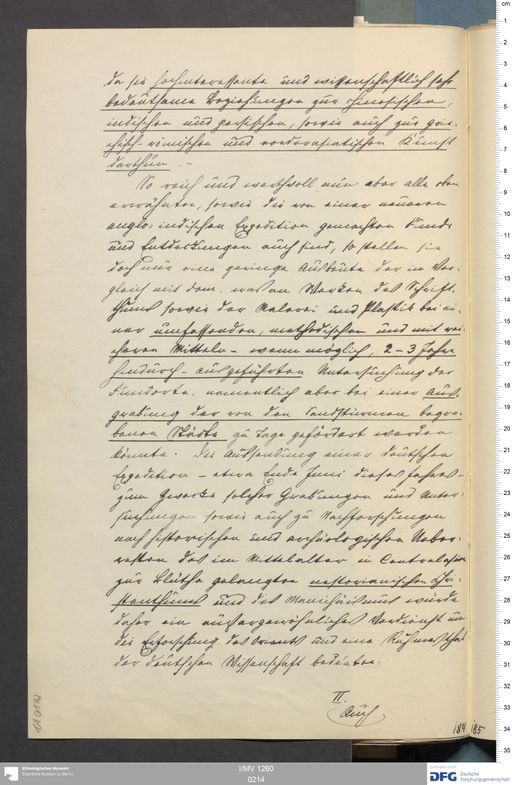 da sie hochinteressante und wissenschaftlich sehr
bedeutsame Beziehungen zur chinesischen,
indischen und persischen, sowie auch zur grie-
chisch-römischen und vorderasiatischen Kunst
darthun. –
So reich und werthvoll nun aber alle oben
erwähnten, sowie die von einer neueren
anglo-indischen Expedition gemachten Funde
und Entdeckungen auch sind, so stellen sie
doch nur eine geringe Ausbeute dar im Ver-
gleich mit dem, was an Werken des Schrift-
thums sowie der Malerei und Plastik bei ei-
ner umfassenden, methodischen und mit rei-
cheren Mitteln – wenn möglich, 2–3 Jahre
hindurch – ausgeführten Untersuchung der
Fundorte, namentlich aber bei einer Aus-
grabung der von den Sandstürmen begra-
benen Städte zu Tage gefördert werden
könnte. Die Aussendung einer deutschen
Expedition – etwa Ende Juni dieses Jahres –
zum Zwecke solcher Grabungen und Unter-
suchungen sowie auch zu Nachforschungen
nach historischen und archäologischen Ueber-
resten des im Mittelalter in Centralasien
zur Blüthe gelangten nestorianischen Chri-
stenthums und des Manichäismus würde
daher ein außergewöhnliches Verdienst um
die Erforschung des Orients und eine Ruhmesthat
der deutschen Wissenschaft bedeuten.
II.
Auch
184 185
Ethnologisches Museum
Staatliche Museen zu Berlin
I/MV 1260
0214
DFG Deutsche
Forschungsgemeinschaft